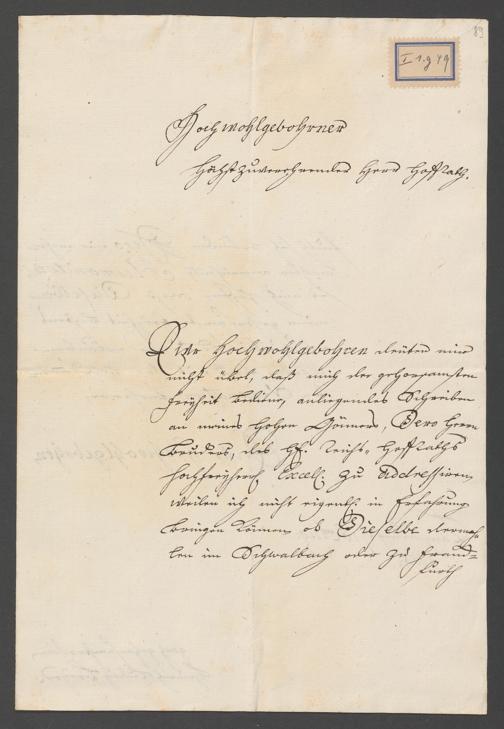 89
I 1.g 49
Hochwohlgebohrner
Höchstzuverehrender Herr Hoffrath.
Euer Hochwohlgebohren deuten mir
nicht übel, daß mich der gehorsamsten
Freyheit bediene, anliegendes Schreiben
an meines hohen Gönners, Dero Herrn
Bruders, des H. Reichs-Hoffraths
Hochfreyherrl. Excell. zu addressiren,
weilen ich nicht eigentl. in Erfahrung
bringen können ob Dieselbe derma-
len in Schwalbach oder zu Franck-
furth